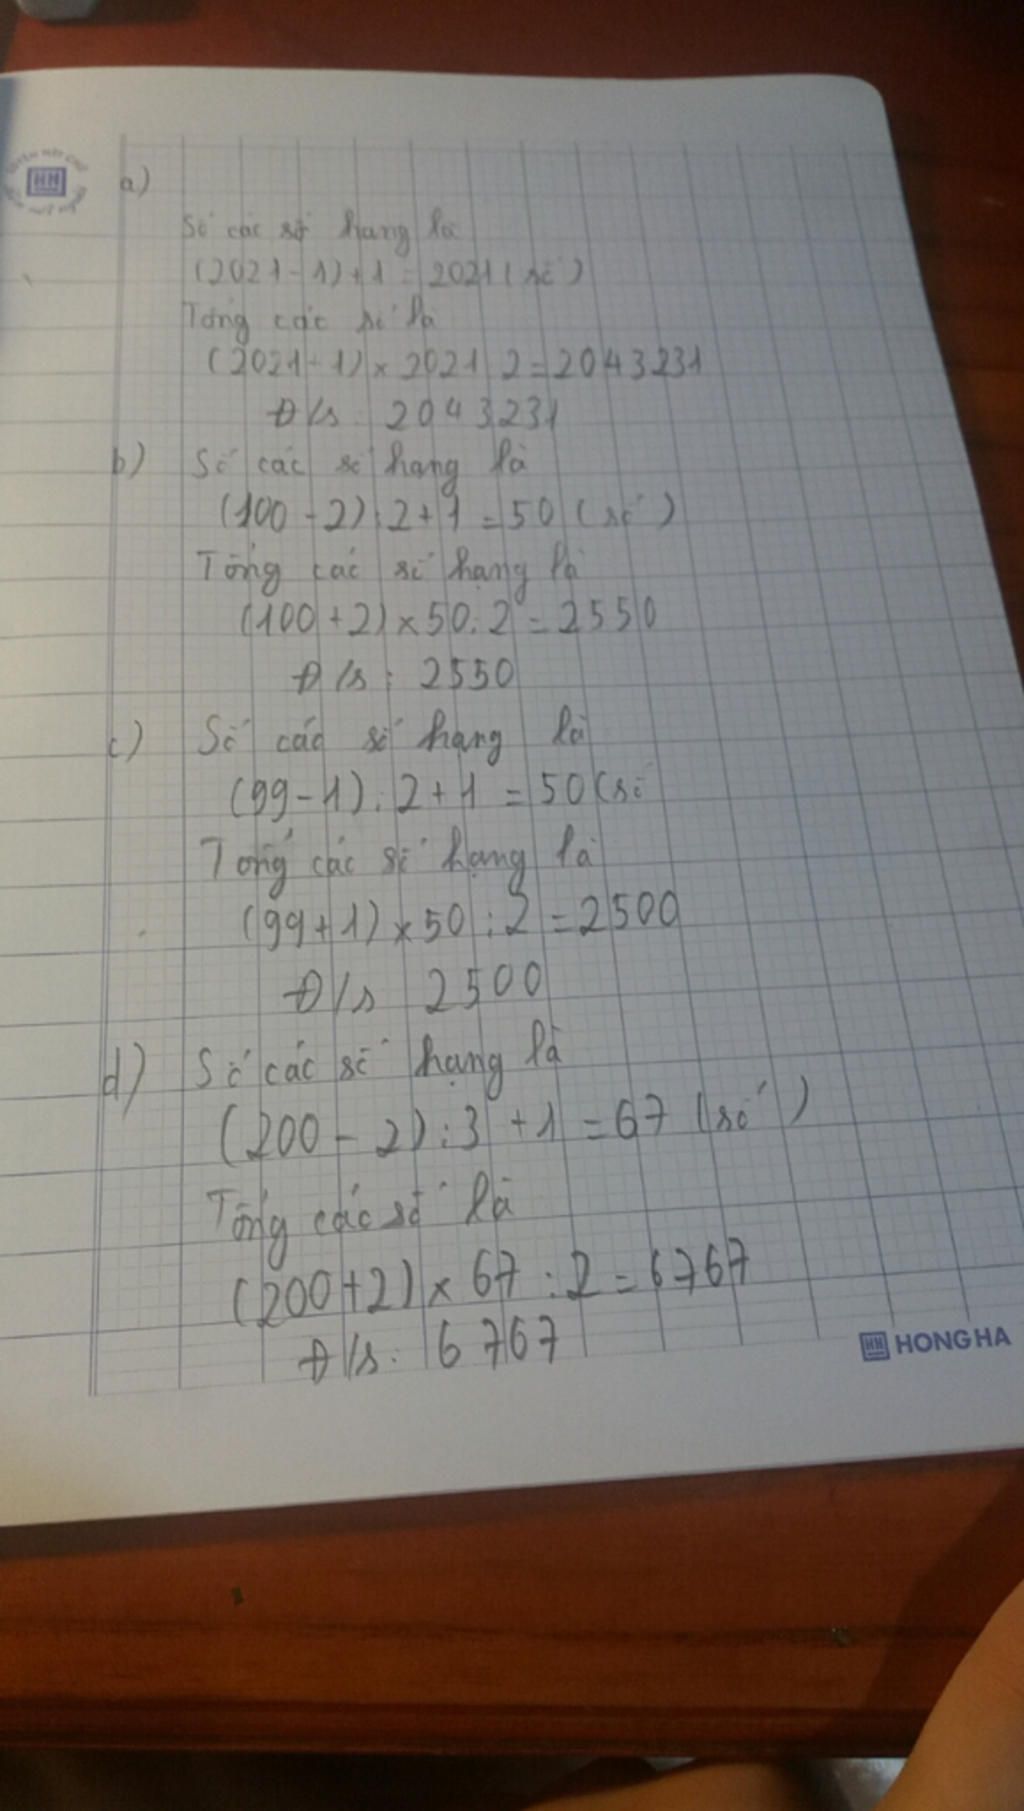 HH
a)
Số các số hạng là
(2021-1)+1=2021(số)
Tổng các số là
(2021-1)×2021:2=2043231
Đ/s: 2043231
b) Số các số hạng là
(100-2):2+1=50(số)
Tổng các số hạng là
(100+2)×50:2=2550
Đ/s: 2550
c) Số các số hạng là
(99-1):2+1=50(số
Tổng các số hạng là
(99+1)×50:2=2500
Đ/s 2500
d) Số các số hạng là
(200-2):3+1=67(số)
Tổng các số là
(200+2)×67:2=6767
Đ/s: 6767
HH HONG HA